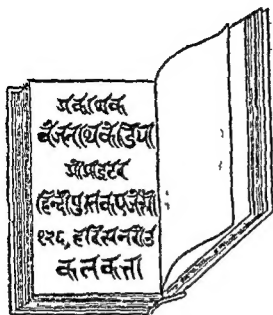 प्रकाशक
बैजनाथ केडिया
प्रोप्राइटर
हिन्दी पुस्तक एजेन्सी
१२६, हरिसन रोड
कलकत्ता